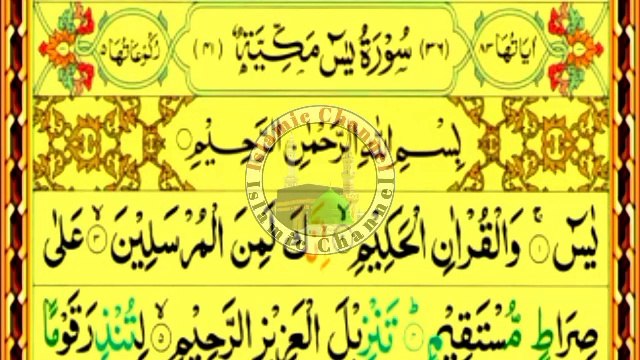 اٰیَاتُهَا ٨٣ (٣٦) سُوْرَةُ يٰسٓ مَكِّيَّةٌ (٤١) رُكُوْعَاتُهَا ٥
بِسْمِ اللّٰهِ الرَّحْمٰنِ الرَّحِيْمِ
يٰسٓ ۚ ﴿١﴾ وَالْقُرْاٰنِ الْحَكِيْمِ ۙ لَمِنَ الْمُرْسَلِيْنَ ۙ ﴿٣﴾ عَلٰى
صِرَاطٍ مُّسْتَقِيْمٍ ؕ ﴿٤﴾ تَنْزِيْلَ الْعَزِيْزِ الرَّحِيْمِ ۙ ﴿٥﴾ لِتُنْذِرَ قَوْمًا
Islamic Channel
Islamic Channel